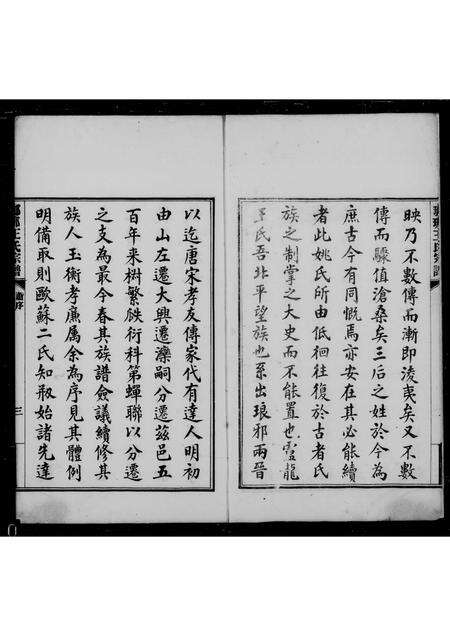 映乃不數傳而漸即淩夷矣又不數
傳而驟值滄桑矣三后之姓於今為
庶古今有同慨焉亦安在其必能續
者此姚氏所由低徊往復於古者氏
族之制掌之大史而不能置也雲龍
王氏吾北平望族也系出琅邪兩晉
以迄唐宋孝友傳家代有達人明初
由山左遷大興遷灤嗣分遷茲邑五
百年來樹繁瓞衍科第蟬聯以分遷
之支為最今春其族譜僉議續修其
族人玉衡孝廉屬余為序見其體例
明備取則歐蘇二氏知刱始諸先達
琊王氏宗譜
序
三